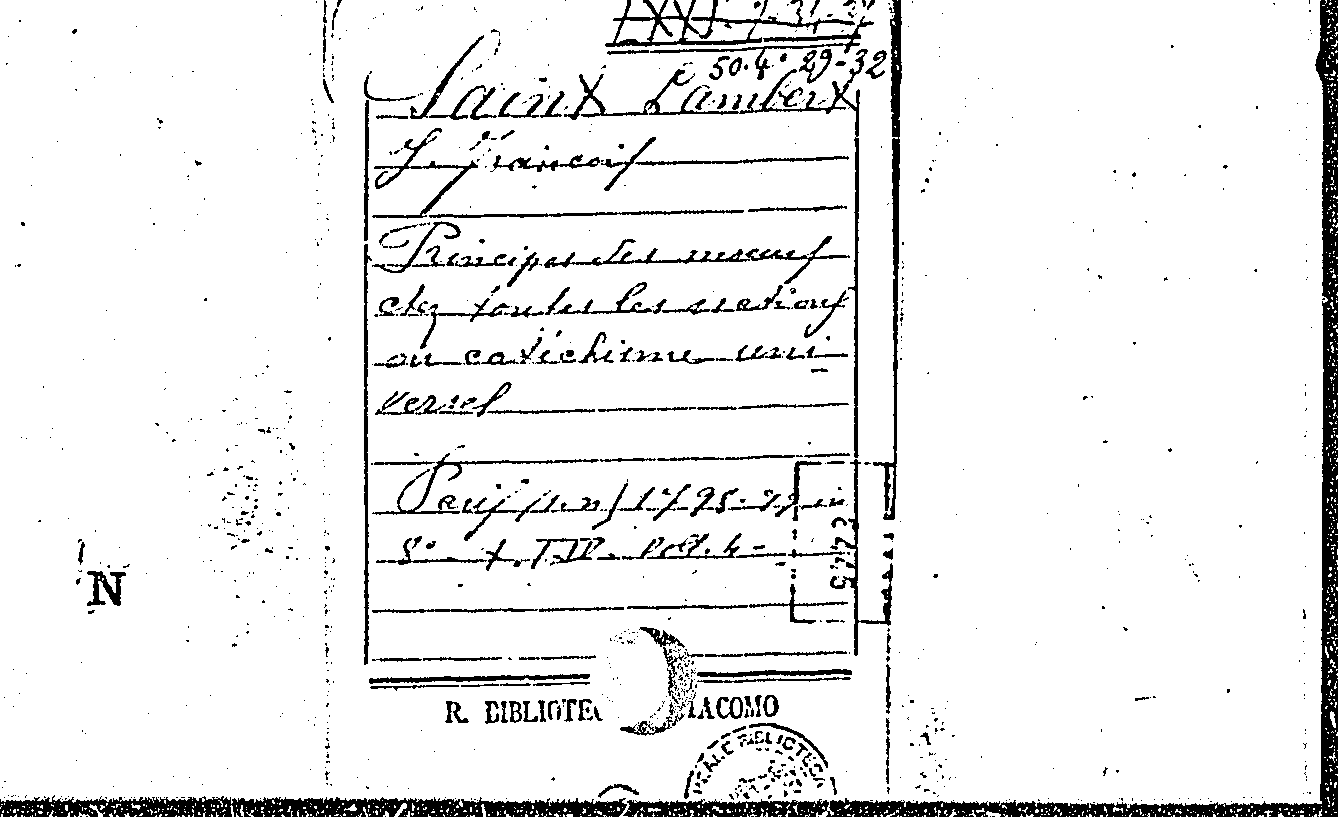 50.4° 29-32
Saint Lambert
J. François
Principes des moeurs
chez toutes les nations
ou catéchisme uni
versel
Paris (s.n) 1795- in
8° - t. III. Vol. 4-
R. BIBLIOTE IACOMO
REALE BIBLIOTECA
N